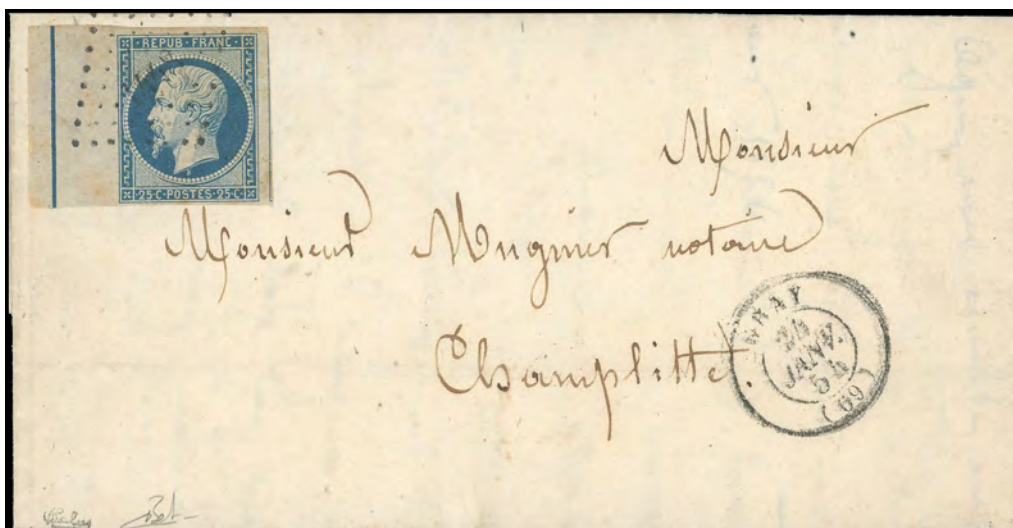 REPUB·FRANC·
25·C·POSTES·25·C·
Monsieur
Monsieur Mugnier notaire
Champlitte.
GRAY
JANV.
54
(69)